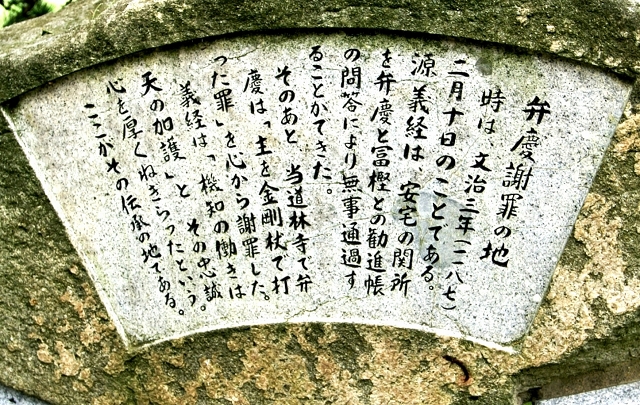 弁慶謝罪の地
時は、文治三年(一一八七)
二月十日のことである。
源義経は、安宅の関所
を弁慶と冨樫との勧進帳
の問答により無事通過す
ることができた。
そのあと、当道林寺で弁
慶は「主を金剛杖で打
った罪」を心から謝罪した。
義経は「機知の働きは
天の加護」と その忠誠
心を厚くねぎらったという。
ここがその伝承の地である。